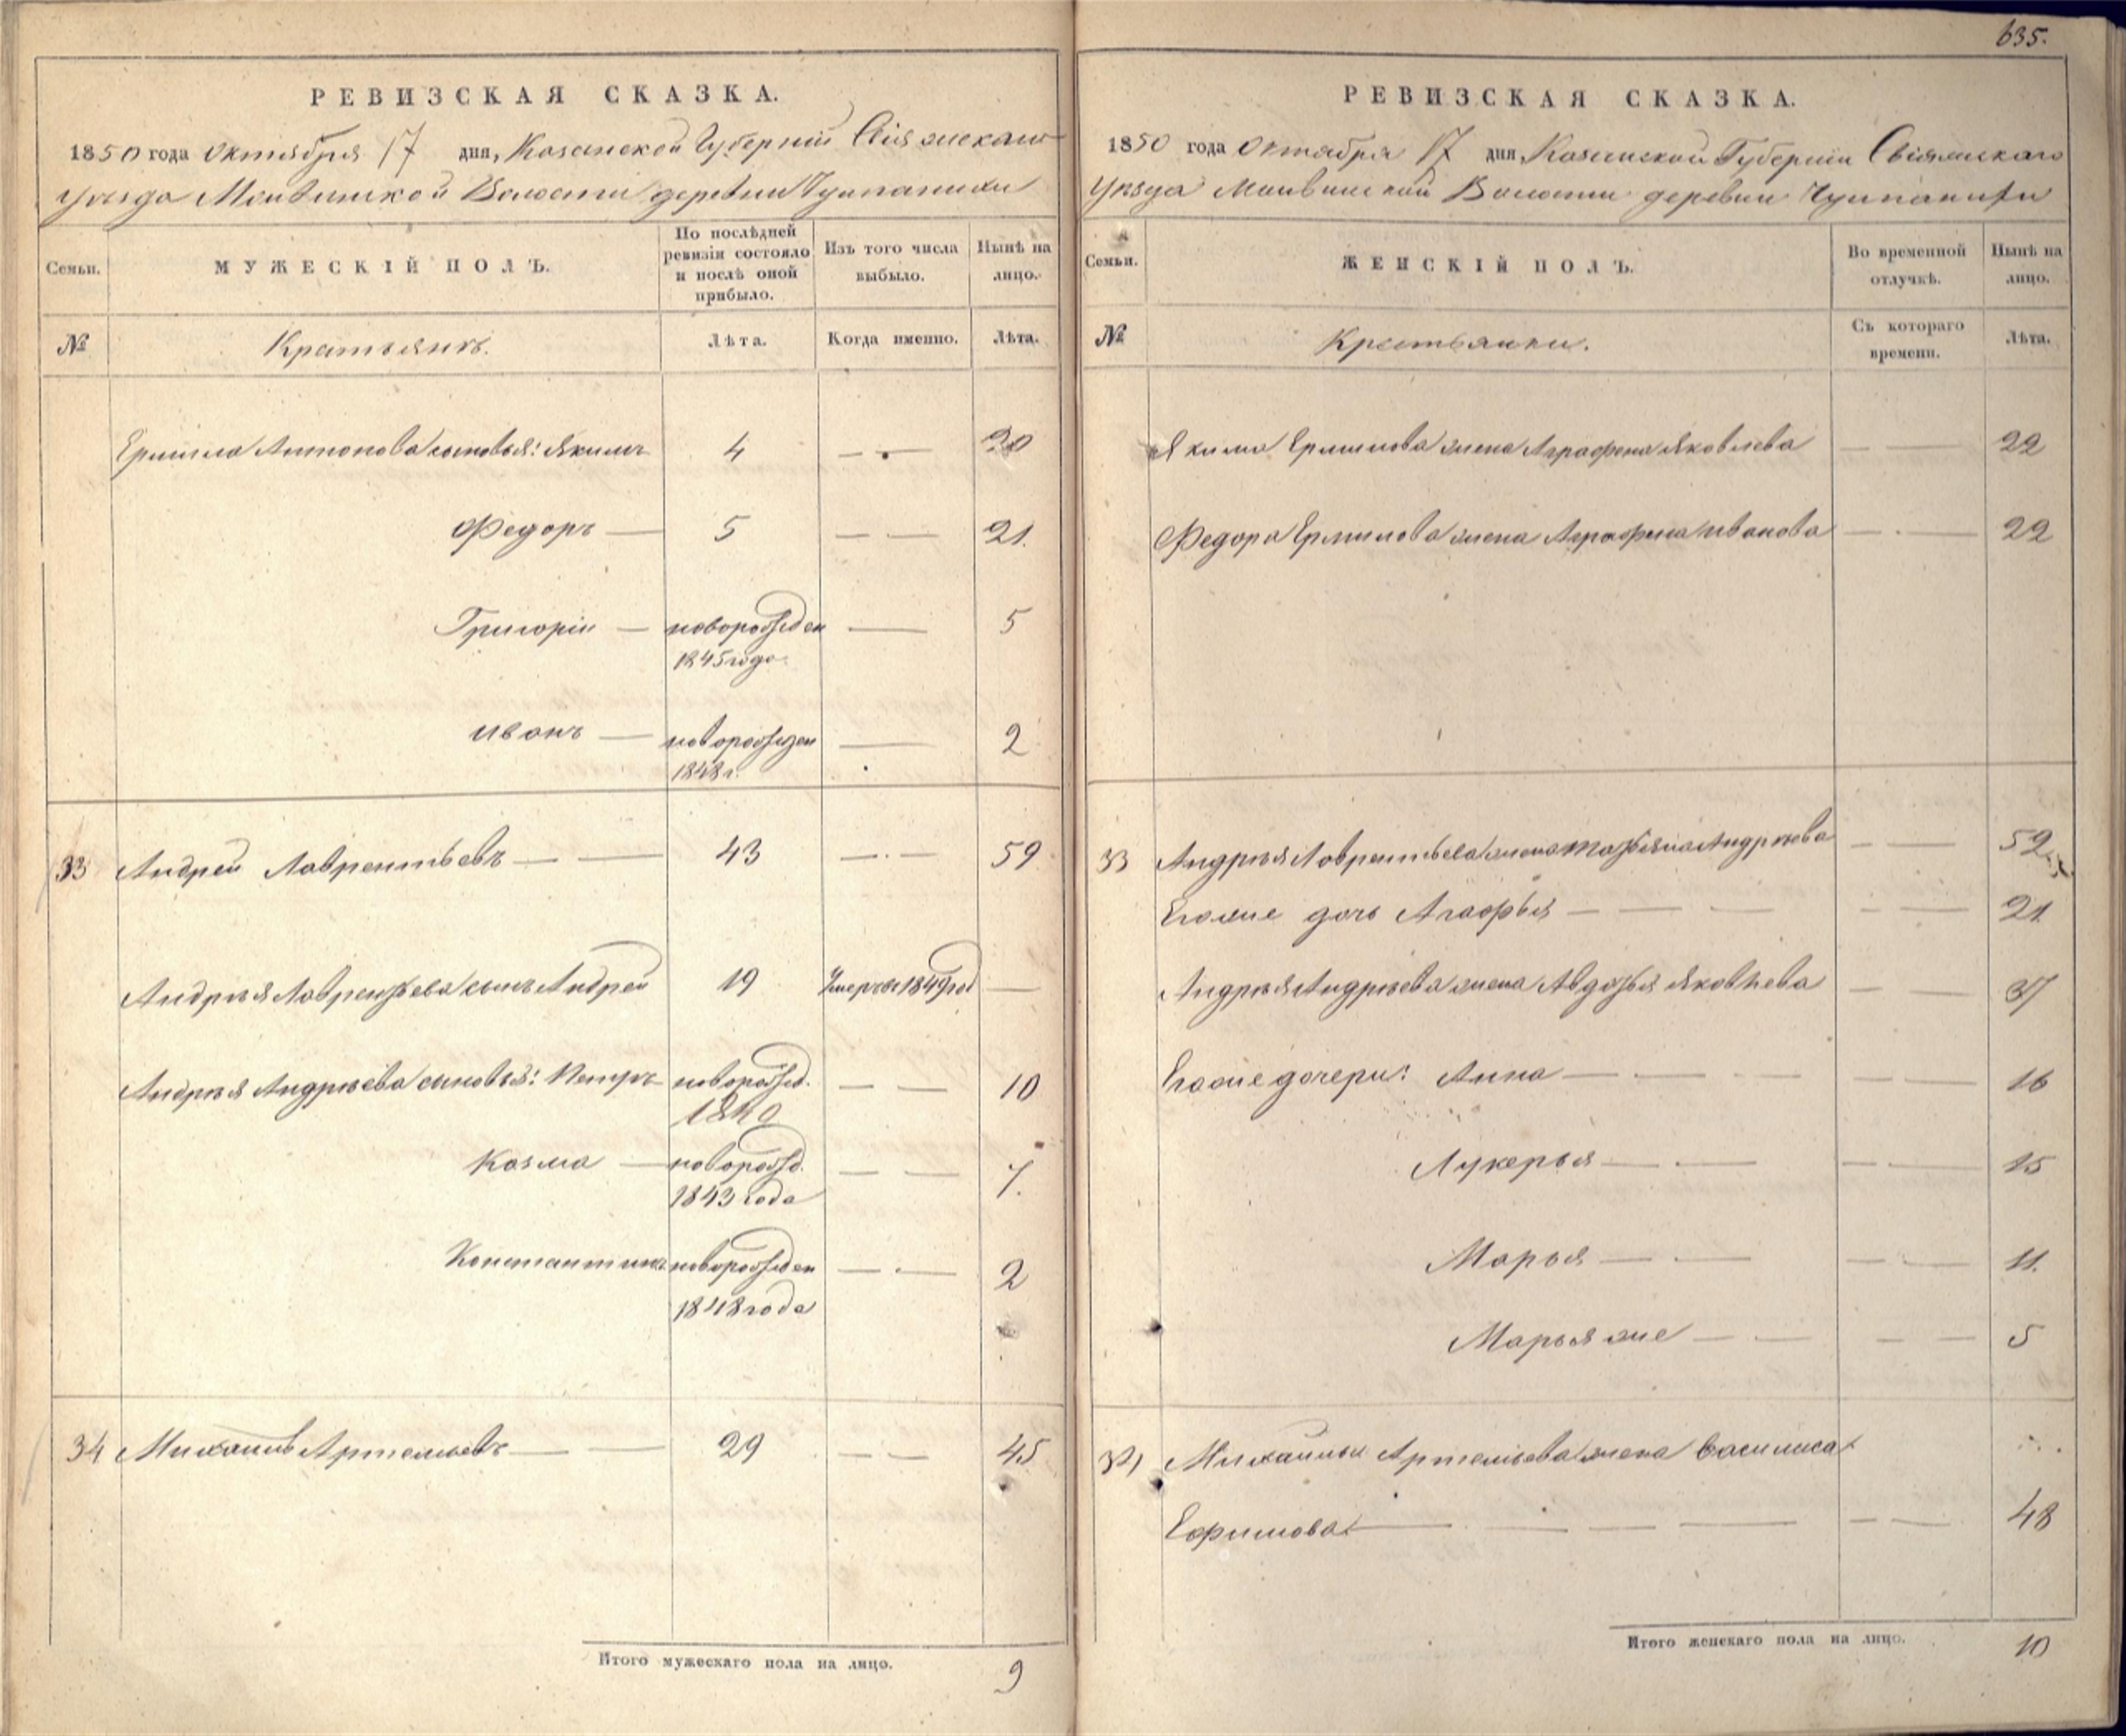 РЕВИЗСКАЯ СКАЗКА.
1850 года Октября 17 дня, Казанской Губернии Свіяжскаго
уѣзда Волости деревни
Семьи. МУЖЕСКІЙ ПОЛЪ. По послѣдней ревизіи состояло и послѣ оной прибыло. Изъ того числа выбыло. Нынѣ на лицо.
№ Крестьянъ. Лѣта. Когда именно. Лѣта.
Ермила Антонова сыновья: Якимъ 4 — — 20
Федоръ — 5 — — 21.
Григорій — новорожден — 5
1845 года
Иванъ — новорожден — 2
1848 г.
33 Андрей Лаврентьевъ — — 43 — — 59
Андрѣя Лаврентьева сынъ Андрей 19 Умеръ въ 1849 год —
Андрѣя Андрѣева сыновья: Петръ новорожд. — — 10
1840
Козма — новорожд. — — 7.
1843 года
Константинъ новорожден — — 2
1848 года
34 Михаилъ Артемьевъ — — 29 — — 45
Итого мужескаго пола на лицо. 9
635.
РЕВИЗСКАЯ СКАЗКА.
1850 года Октября 17 дня, Казанской Губерніи Свіяжскаго
Уѣзда Волости деревни
Семьи. ЖЕНСКІЙ ПОЛЪ. Во временной отлучкѣ. Нынѣ на лицо.
№ Крестьянки. Съ котораго времени. Лѣта.
Якима Ермилова жена Аграфена Яковлева — — 22
Федора Ермилова жена Аграфена Иванова — — 22
33 Андрѣя Лаврентьева жена Татьяна Андрѣева — — 52
Егоже дочь Агафья — — — — — 21
Андрѣя Андрѣева жена Авдотья Яковлева — — 37
Егоже дочери: Анна — — — — — 16
Лукерья — — — — 15
Марья — — — — 11.
Марья же — — — — 5
34 Михаилы Артемьева жена Василиса
Ефимова — — — — — — 48
Итого женскаго пола на лицо. 10